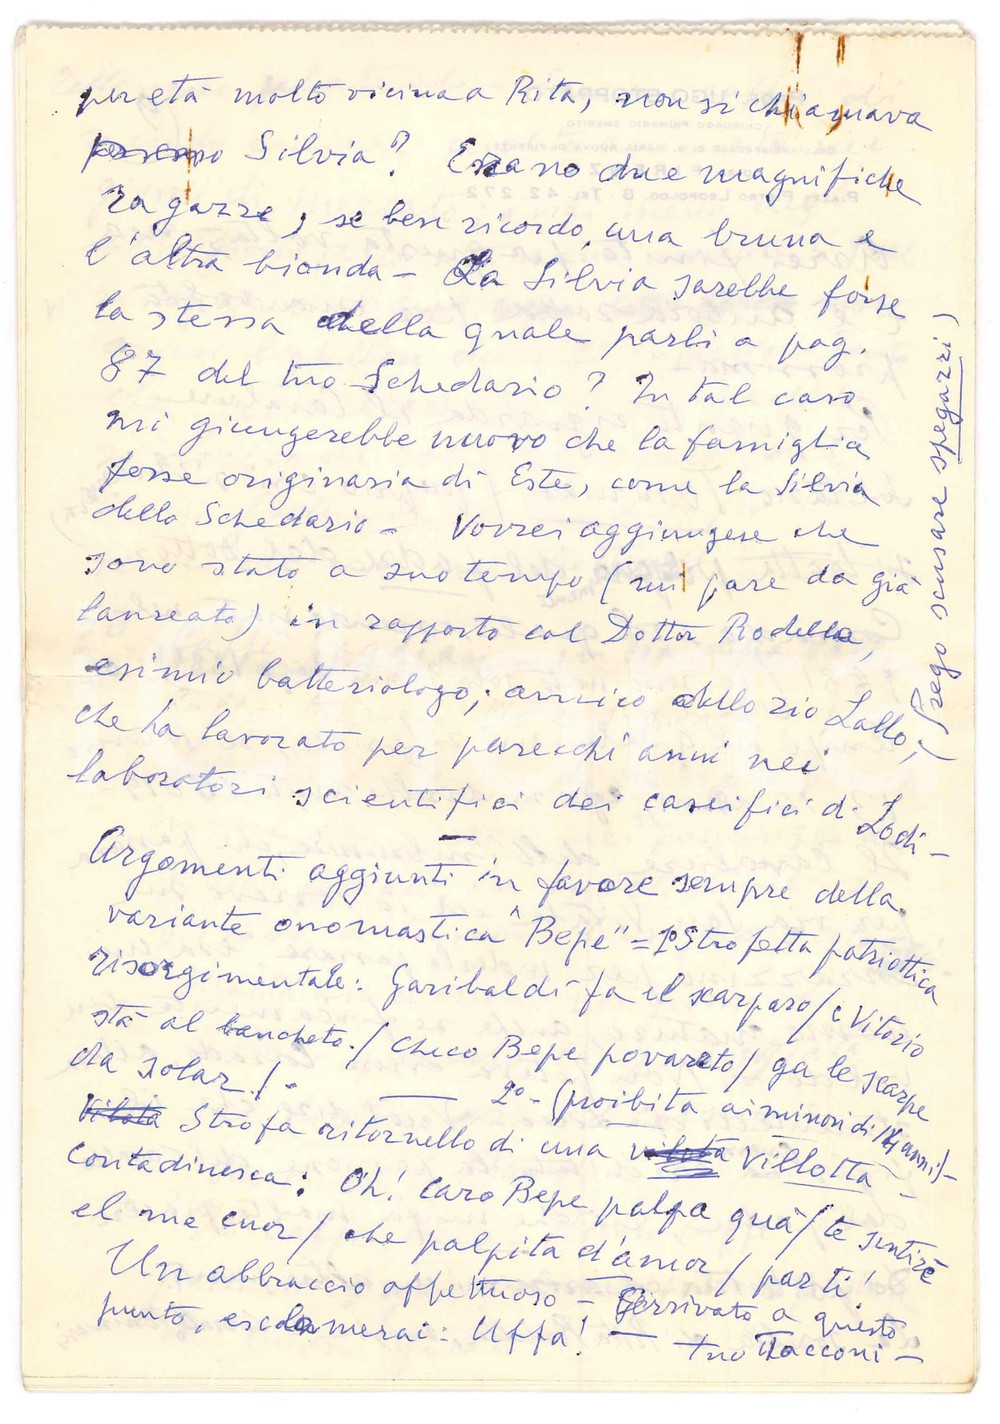 per età molto vicina a Rita, non si chiamava
Silvia? Erano due magnifiche
ragazze, se ben ricordo, una bruna e
l'altra bionda – La Silvia sarebbe forse
la stessa della quale parli a pag.
87 del tuo Schedario? In tal caso
mi giungerebbe nuovo che la famiglia
fosse originaria di Este, come la Silvia
dello Schedario – Vorrei aggiungere che
sono stato a suo tempo (mi pare da già
laureato) in rapporto col Dottor Rodella,
esimio batteriologo, amico dello zio Lallo,
che ha lavorato per parecchi anni nei
laboratori scientifici dei caseifici di Lodi –
Argomenti aggiunti in favore sempre della
variante onomastica "Bepe" = 1° Strofetta patriottica
risorgimentale: Garibaldi fa el scarparo / e Vitorio
stà al bancheto. / Checo Bepe povareto / ga le scarpe
da solar! –
2° – (proibita ai minori di 14 anni) –
Strofa ritornello di una villotta –
contadinesca: Oh! caro Bepe palpa quà / te sentirè
el me cuor / che palpita d'amor / par ti!
Un abbraccio affettuoso – arrivato a questo
punto, esclamerai: Uffa! –
tuo Tacconi –
(Prego scusare spegazzi)